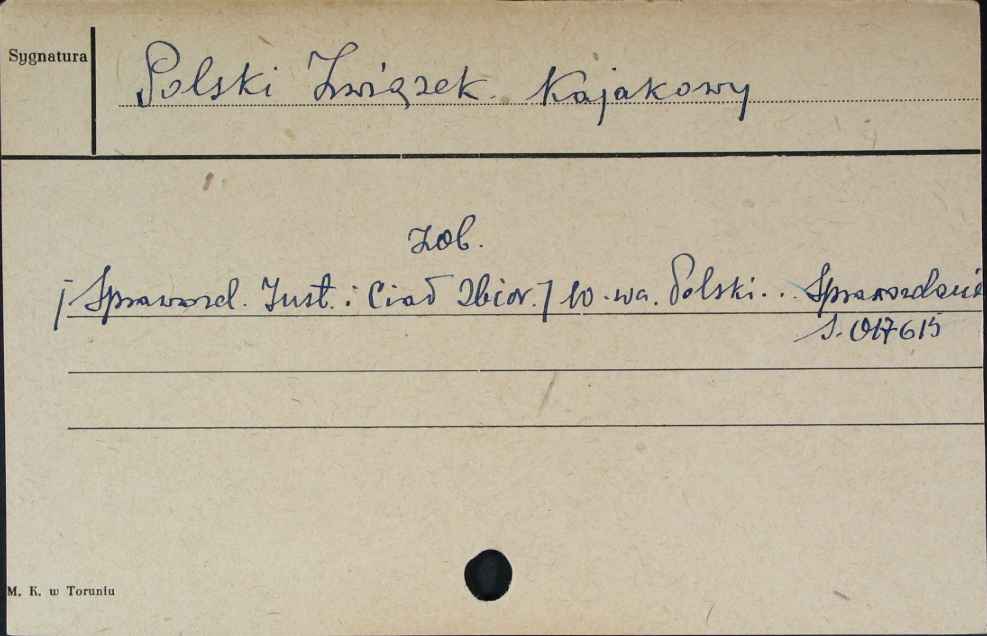 Sygnatura
Polski Związek Kajakowy
zob.
[Sprawozd. Inst. i Ciał Zbior.] W-wa. Polski... Sprawozdanie
S. 017615
M. K. w Toruniu